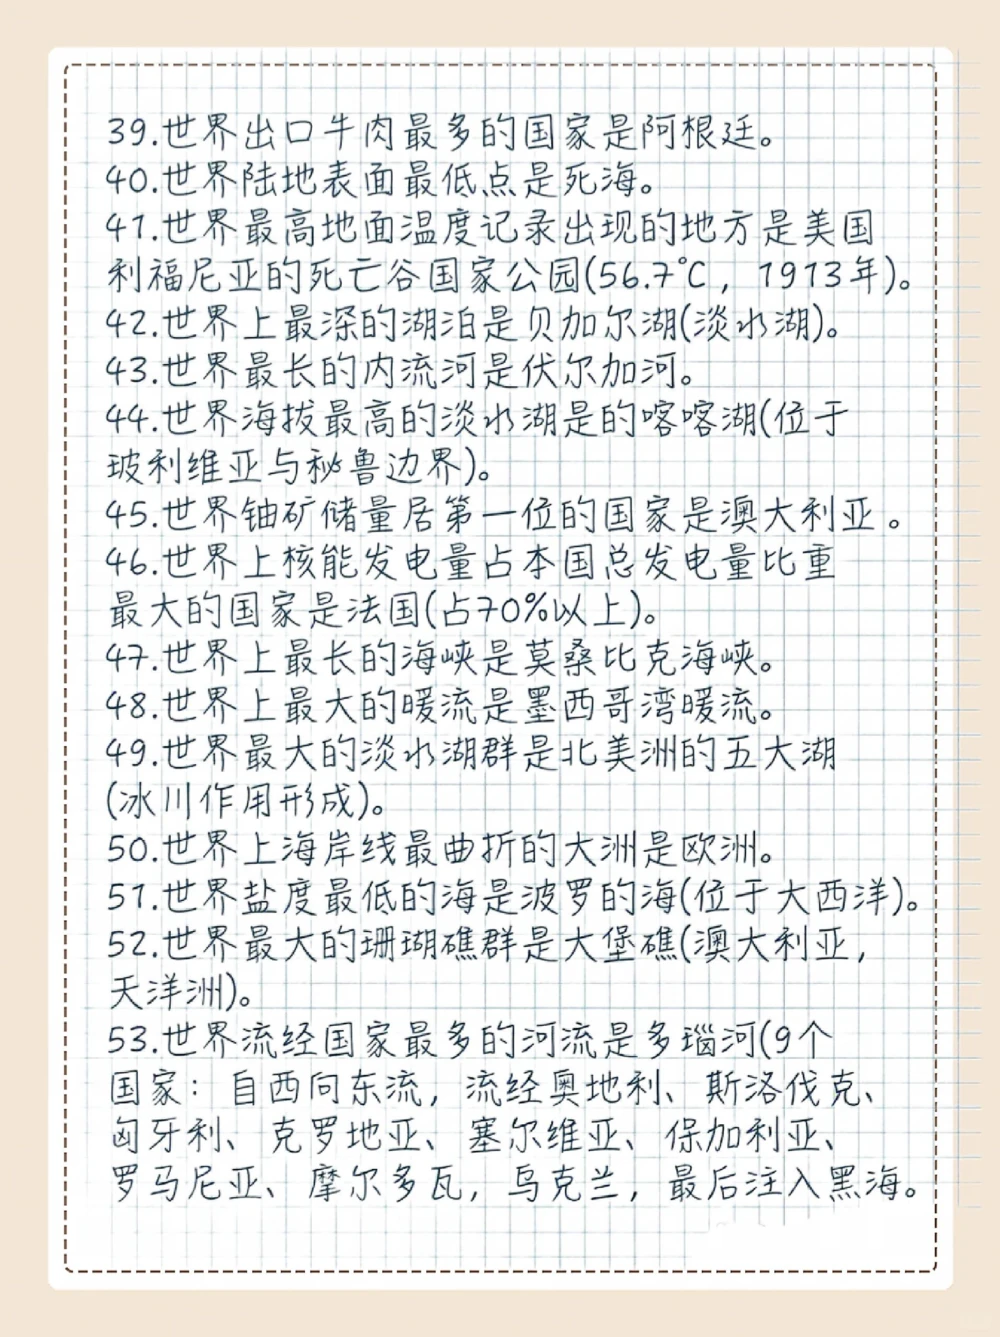 39.世界出口牛肉最多的国家是阿根廷。
40.世界陆地表面最低点是死海。
41.世界最高地面温度记录出现的地方是美国
利福尼亚的死亡谷国家公园(56.7℃，1913年)。
42.世界上最深的湖泊是贝加尔湖(淡水湖)。
43.世界最长的内流河是伏尔加河。
44.世界海拔最高的淡水湖是的喀喀湖(位于
玻利维亚与秘鲁边界)。
45.世界铀矿储量居第一位的国家是澳大利亚。
46.世界上核能发电量占本国总发电量比重
最大的国家是法国(占70%以上)。
47.世界上最长的海峡是莫桑比克海峡。
48.世界上最大的暖流是墨西哥湾暖流。
49.世界最大的淡水湖群是北美洲的五大湖
(冰川作用形成)。
50.世界上海岸线最曲折的大洲是欧洲。
51.世界盐度最低的海是波罗的海(位于大西洋)。
52.世界最大的珊瑚礁群是大堡礁(澳大利亚，
天洋洲)。
53.世界流经国家最多的河流是多瑙河(9个
国家：自西向东流，流经奥地利、斯洛伐克、
匈牙利、克罗地亚、塞尔维亚、保加利亚、
罗马尼亚、摩尔多瓦，乌克兰，最后注入黑海。